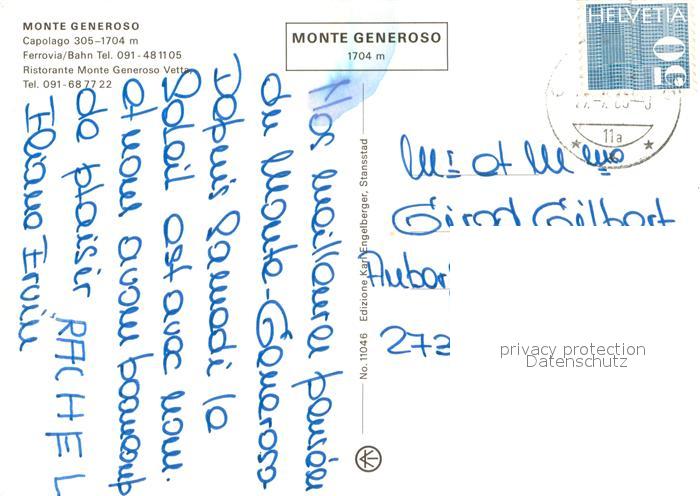 MONTE GENEROSO
Capolago 305–1704 m
Ferrovia/Bahn Tel. 091-48 11 05
Ristorante Monte Generoso Vetta
Tel. 091-68 77 22
MONTE GENEROSO
1704 m
HELVETIA
50
11a
Nos meilleure pensée
du Monte-Generoso
Depuis Samedi le
Soleil est avec nous.
et nous avons beaucoup
de plaisir RACHEL
Eliane Erwin
No. 11046 Edizione Karl Engelberger, Stansstad
Mr et Mme
Girod Gilbert
Aubor
273
privacy protection
Datenschutz